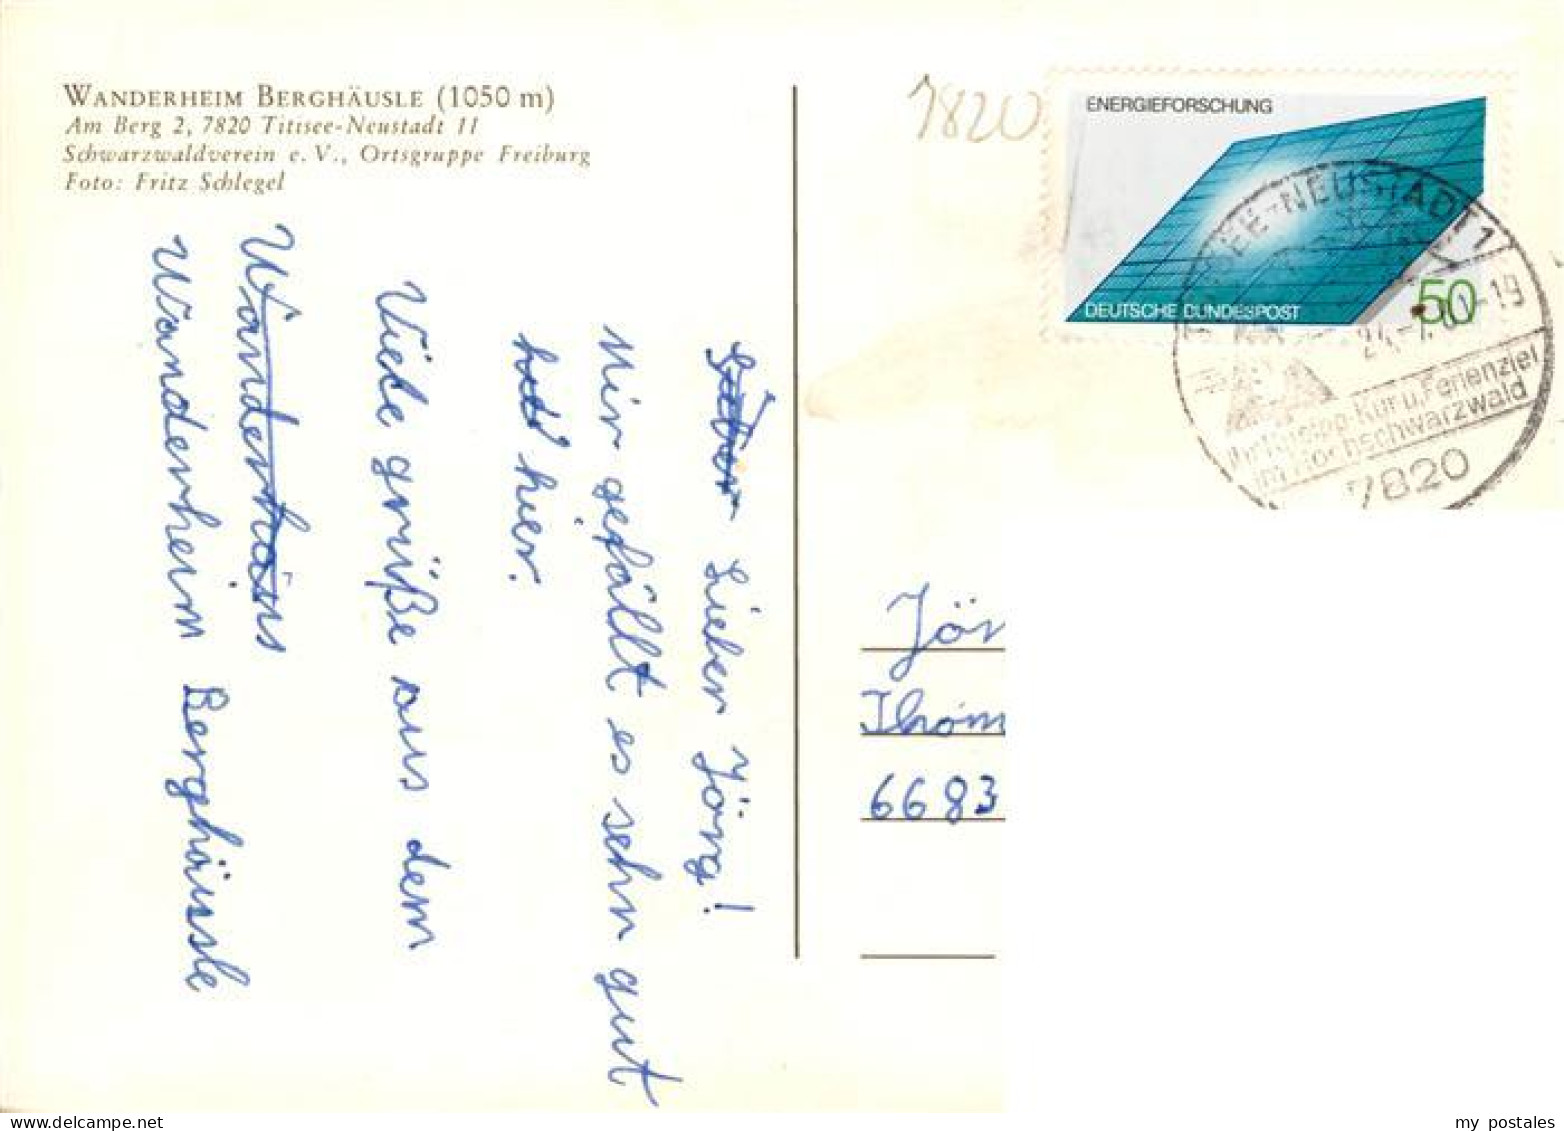 WANDERHEIM BERGHÄUSLE (1050 m)
Am Berg 2, 7820 Titisee-Neustadt 11
Schwarzwaldverein e. V., Ortsgruppe Freiburg
Foto: Fritz Schlegel
Lieber Jörg!
Mir gefällt es sehn gut
hier.
Viele grüße aus dem
Wanderhäus
Wanderheim Berghäusle
7820
ENERGIEFORSCHUNG
DEUTSCHE BUNDESPOST
50
SEE-NEUSTADT 1
-19
Kur u. Ferienziel
im Hochschwarzwald
7820
Jör
Thom
6683
my postales